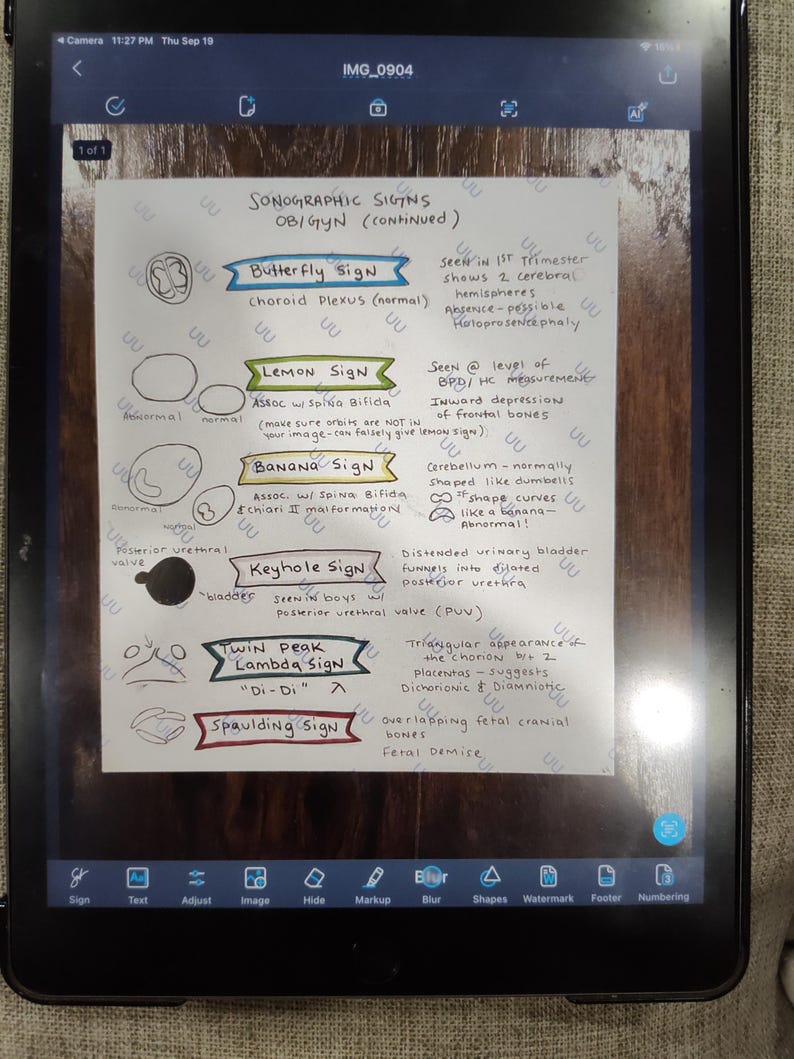 Camera 11:27 PM Thu Sep 19
16%
IMG_0904
AI
1 of 1
SONOGRAPHIC SIGNS
OB/GYN (continued)
Butterfly Sign
Choroid Plexus (normal)
Seen in 1ST Trimester
shows 2 cerebral
hemispheres
Absence - possible
Holoprosencephaly
Lemon Sign
Assoc w/ Spina Bifida
(make sure orbits are NOT in
your image - can falsely give lemon sign)
Abnormal
normal
Seen @ level of
BPD/HC measurement
Inward depression
of frontal bones
Banana Sign
Assoc. w/ Spina Bifida
& Chiari II malformation
Abnormal
Normal
Cerebellum - normally
shaped like dumbells
If shape curves
like a banana -
Abnormal!
Posterior urethral
valve
bladder
Keyhole Sign
seen in boys w/
posterior urethral valve (PUV)
Distended urinary bladder
funnels into dilated
posterior urethra
Twin Peak
Lambda Sign
"Di-Di" λ
Triangular appearance of
the chorion b/t 2
placentas - suggests
Dichorionic & Diamniotic
Spaulding Sign
overlapping fetal cranial
bones
Fetal Demise
UU
Sign
Aa
Text
Adjust
Image
Hide
Markup
Blur
Blur
Shapes
W
Watermark
Footer
3
Numbering